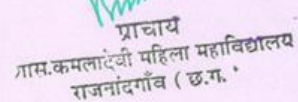 प्राचार्य
शास.कमलादेवी महिला महाविद्यालय
राजनांदगाँव ( छ.ग.